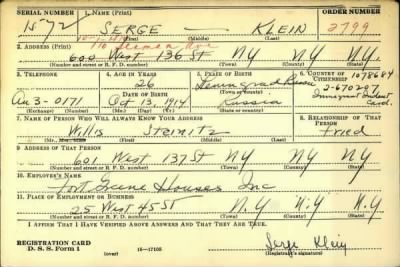 SERIAL NUMBER 1. NAME (Print) ORDER NUMBER
1572 SERGE — KLEIN 2799
(First) (Middle) (Last)
2. ADDRESS (Print)
600 West 136 St NY NY NY
(Number and street or R. F. D. number) (Town) (County) (State)
3. TELEPHONE 4. AGE IN YEARS 5. PLACE OF BIRTH 6. COUNTRY OF CITIZENSHIP
26 Leningrad Russia 1078684
2-670297
Au 3-0171 DATE OF BIRTH Oct 13, 1914 Russia Immigrant Ident Card.
(Exchange) (Number) (Mo.) (Day) (Yr.) (State or country)
7. NAME OF PERSON WHO WILL ALWAYS KNOW YOUR ADDRESS 8. RELATIONSHIP OF THAT PERSON
Willis Steinitz Fried
(Mr., Mrs., Miss) (First) (Middle) (Last)
9. ADDRESS OF THAT PERSON
601 West 137 St NY NY NY
(Number and street or R. F. D. number) (Town) (County) (State)
10. EMPLOYER'S NAME
Fort Greene Houses Inc
11. PLACE OF EMPLOYMENT OR BUSINESS
25 West 45 St N.Y N.Y NY
(Number and street or R. F. D. number) (Town) (County) (State)
I AFFIRM THAT I HAVE VERIFIED ABOVE ANSWERS AND THAT THEY ARE TRUE.
REGISTRATION CARD
D. S. S. Form 1 (over) 16—17105 Serge Klein
(Registrant's signature)